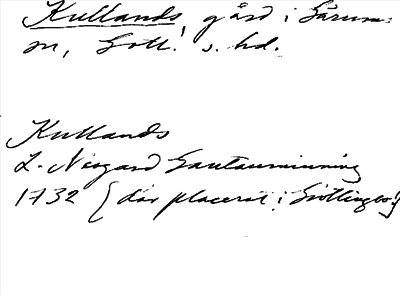 Kullands, gård i Lärum:
sn, Gotl. s. hd.
Kullands
L. Neogard Gautauminning
1732 (där placerat i Gröttlingbo!)